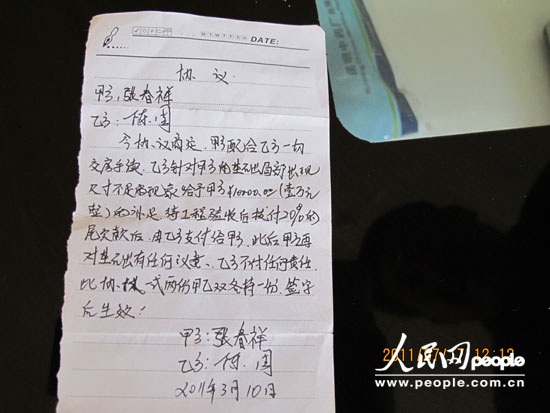 M T W T F S S DATE:
协 议
甲方:张春祥
乙方:陈、周
今协议商定,甲方配合乙方一切
交房手续,乙方针对甲方的
尺寸不足的现象给予甲方¥10000.00(壹万元
整)的补足,待工程验收后拨付20%的
尾欠款后,由乙方支付给甲方,此后甲方再
对 出有任何议意、乙方不付任何责任.
此协 一式两份甲乙双各持一份,签字
后生效!
甲方:张春祥
乙方:陈、周
2011年3月10日
2011/07/17 12:12
人民网 people
www.people.com.cn